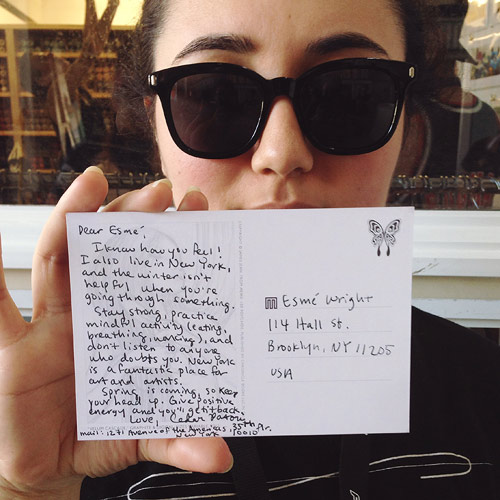 Dear Esmé,
I know how you feel!
I also live in New York,
and the winter isn't
helpful when you're
going through something.
Stay strong, practice
mindful activity (eating,
breathing, working), and
don't listen to anyone
who doubts you. New York
is a fantastic place for
art and artists.
Spring is coming, so keep
your head up. Give positive
energy and you'll get it back.
Love,
mail: 1271 Avenue of the Americas, 35th Flr.
New York 10010
Esmé Wright
114 Hall St.
Brooklyn, NY 11205
USA